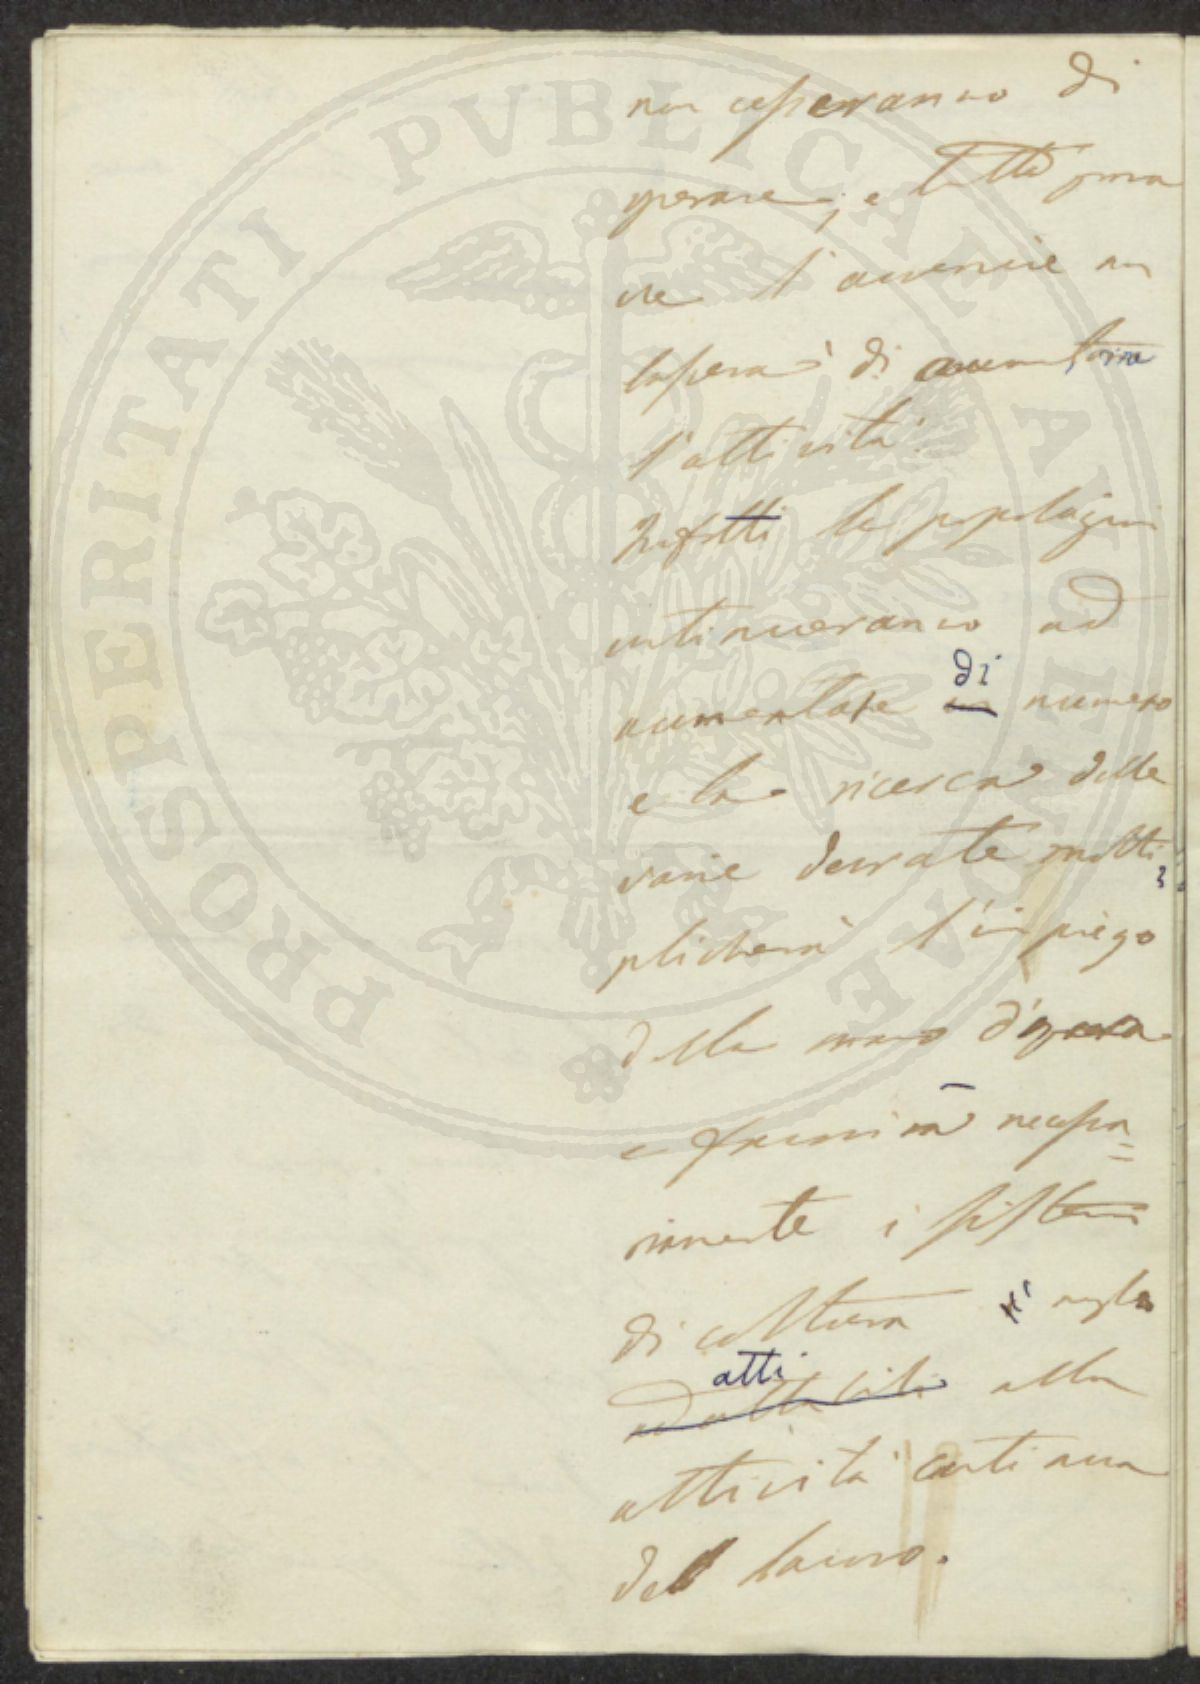 PROSPERITATI PVBLICAE AVGENDAE
non cesseranno di
operare; e tutto fuma
re l'avvenire non
lascerà di aumentarne
l'attività.
Infatti le popolazioni
continueranno ad
aumentare di numero
e la ricerca delle
varie derrate molti
plicherà l'impiego
della mano d'opera
e necessa=
riamente i sistemi
di coltura
adattabili atti alla
attività continua
del lavoro.